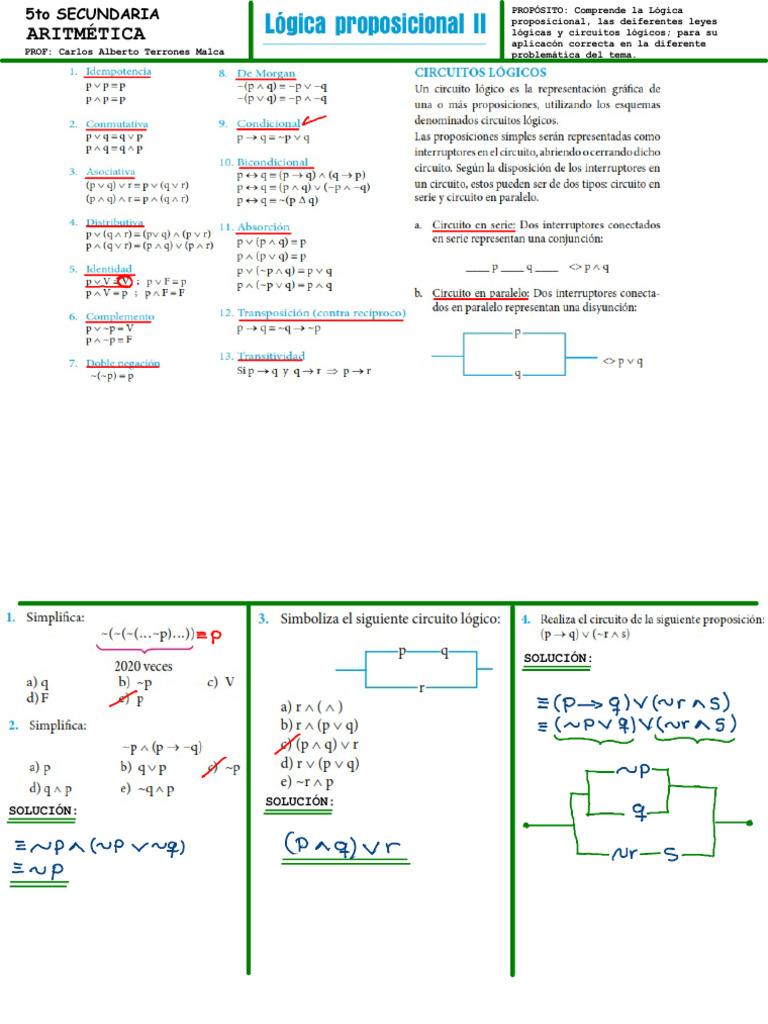 5to SECUNDARIA
ARITMÉTICA
PROF: Carlos Alberto Terrones Malca
Lógica proposicional II
PROPÓSITO: Comprende la Lógica
proposicional, las deiferentes leyes
lógicas y circuitos lógicos; para su
aplicacón correcta en la diferente
problemática del tema.
1. Idempotencia
p ∨ p ≡ p
p ∧ p ≡ p
2. Conmutativa
p ∨ q ≡ q ∨ p
p ∧ q ≡ q ∧ p
3. Asociativa
(p ∨ q) ∨ r ≡ p ∨ (q ∨ r)
(p ∧ q) ∧ r ≡ p ∧ (q ∧ r)
4. Distributiva
p ∨ (q ∧ r) ≡ (p∨ q) ∧ (p∨ r)
p ∧ (q ∨ r) ≡ (p ∧ q) ∨ (p ∧ r)
5. Identidad
p ∨ V ≡ V ; p ∨ F ≡ p
p ∧ V ≡ p ; p ∧ F ≡ F
6. Complemento
p ∨ ~p ≡ V
p ∧ ~p ≡ F
7. Doble negación
~(~p) ≡ p
8. De Morgan
~(p ∧ q) ≡ ~p ∨ ~q
~(p ∨ q) ≡ ~p ∧ ~q
9. Condicional
p → q ≡ ~p ∨ q
10. Bicondicional
p ↔ q ≡ (p → q) ∧ (q → p)
p ↔ q ≡ (p ∧ q) ∨ (~p ∧ ~q)
p ↔ q ≡ ~(p Δ q)
11. Absorción
p ∨ (p ∧ q) ≡ p
p ∧ (p ∨ q) ≡ p
p ∨ (~p ∧ q) ≡ p ∨ q
p ∧ (~p ∨ q) ≡ p ∧ q
12. Transposición (contra recíproco)
p → q ≡ ~q → ~p
13. Transitividad
Si p → q y q → r ⇒ p → r
CIRCUITOS LÓGICOS
Un circuito lógico es la representación gráfica de
una o más proposiciones, utilizando los esquemas
denominados circuitos lógicos.
Las proposiciones simples serán representadas como
interruptores en el circuito, abriendo o cerrando dicho
circuito. Según la disposición de los interruptores en
un circuito, estos pueden ser de dos tipos: circuito en
serie y circuito en paralelo.
a. Circuito en serie: Dos interruptores conectados
en serie representan una conjunción:
____ p ____ q ____ <> p ∧ q
b. Circuito en paralelo: Dos interruptores conecta-
dos en paralelo representan una disyunción:
p
<> p ∨ q
q
1. Simplifica:
~(~(~(...~p)...)) ≡ p
2020 veces
a) q b) ~p c) V
d) F e) p
2. Simplifica:
~p ∧ (p → ~q)
a) p b) q ∨ p c) ~p
d) q ∧ p e) ~q ∧ p
SOLUCIÓN:
≡ ~p ∧ (~p ∨ ~q)
≡ ~p
3. Simboliza el siguiente circuito lógico:
p q
r
a) r ∧ ( ∧ )
b) r ∧ (p ∨ q)
c) (p ∧ q) ∨ r
d) r ∨ (p ∨ q)
e) ~r ∧ p
SOLUCIÓN:
(p ∧ q) ∨ r
4. Realiza el circuito de la siguiente proposición:
(p → q) ∨ (~r ∧ s)
SOLUCIÓN:
≡ (p → q) ∨ (~r ∧ s)
≡ (~p ∨ q) ∨ (~r ∧ s)
~p
q
~r s